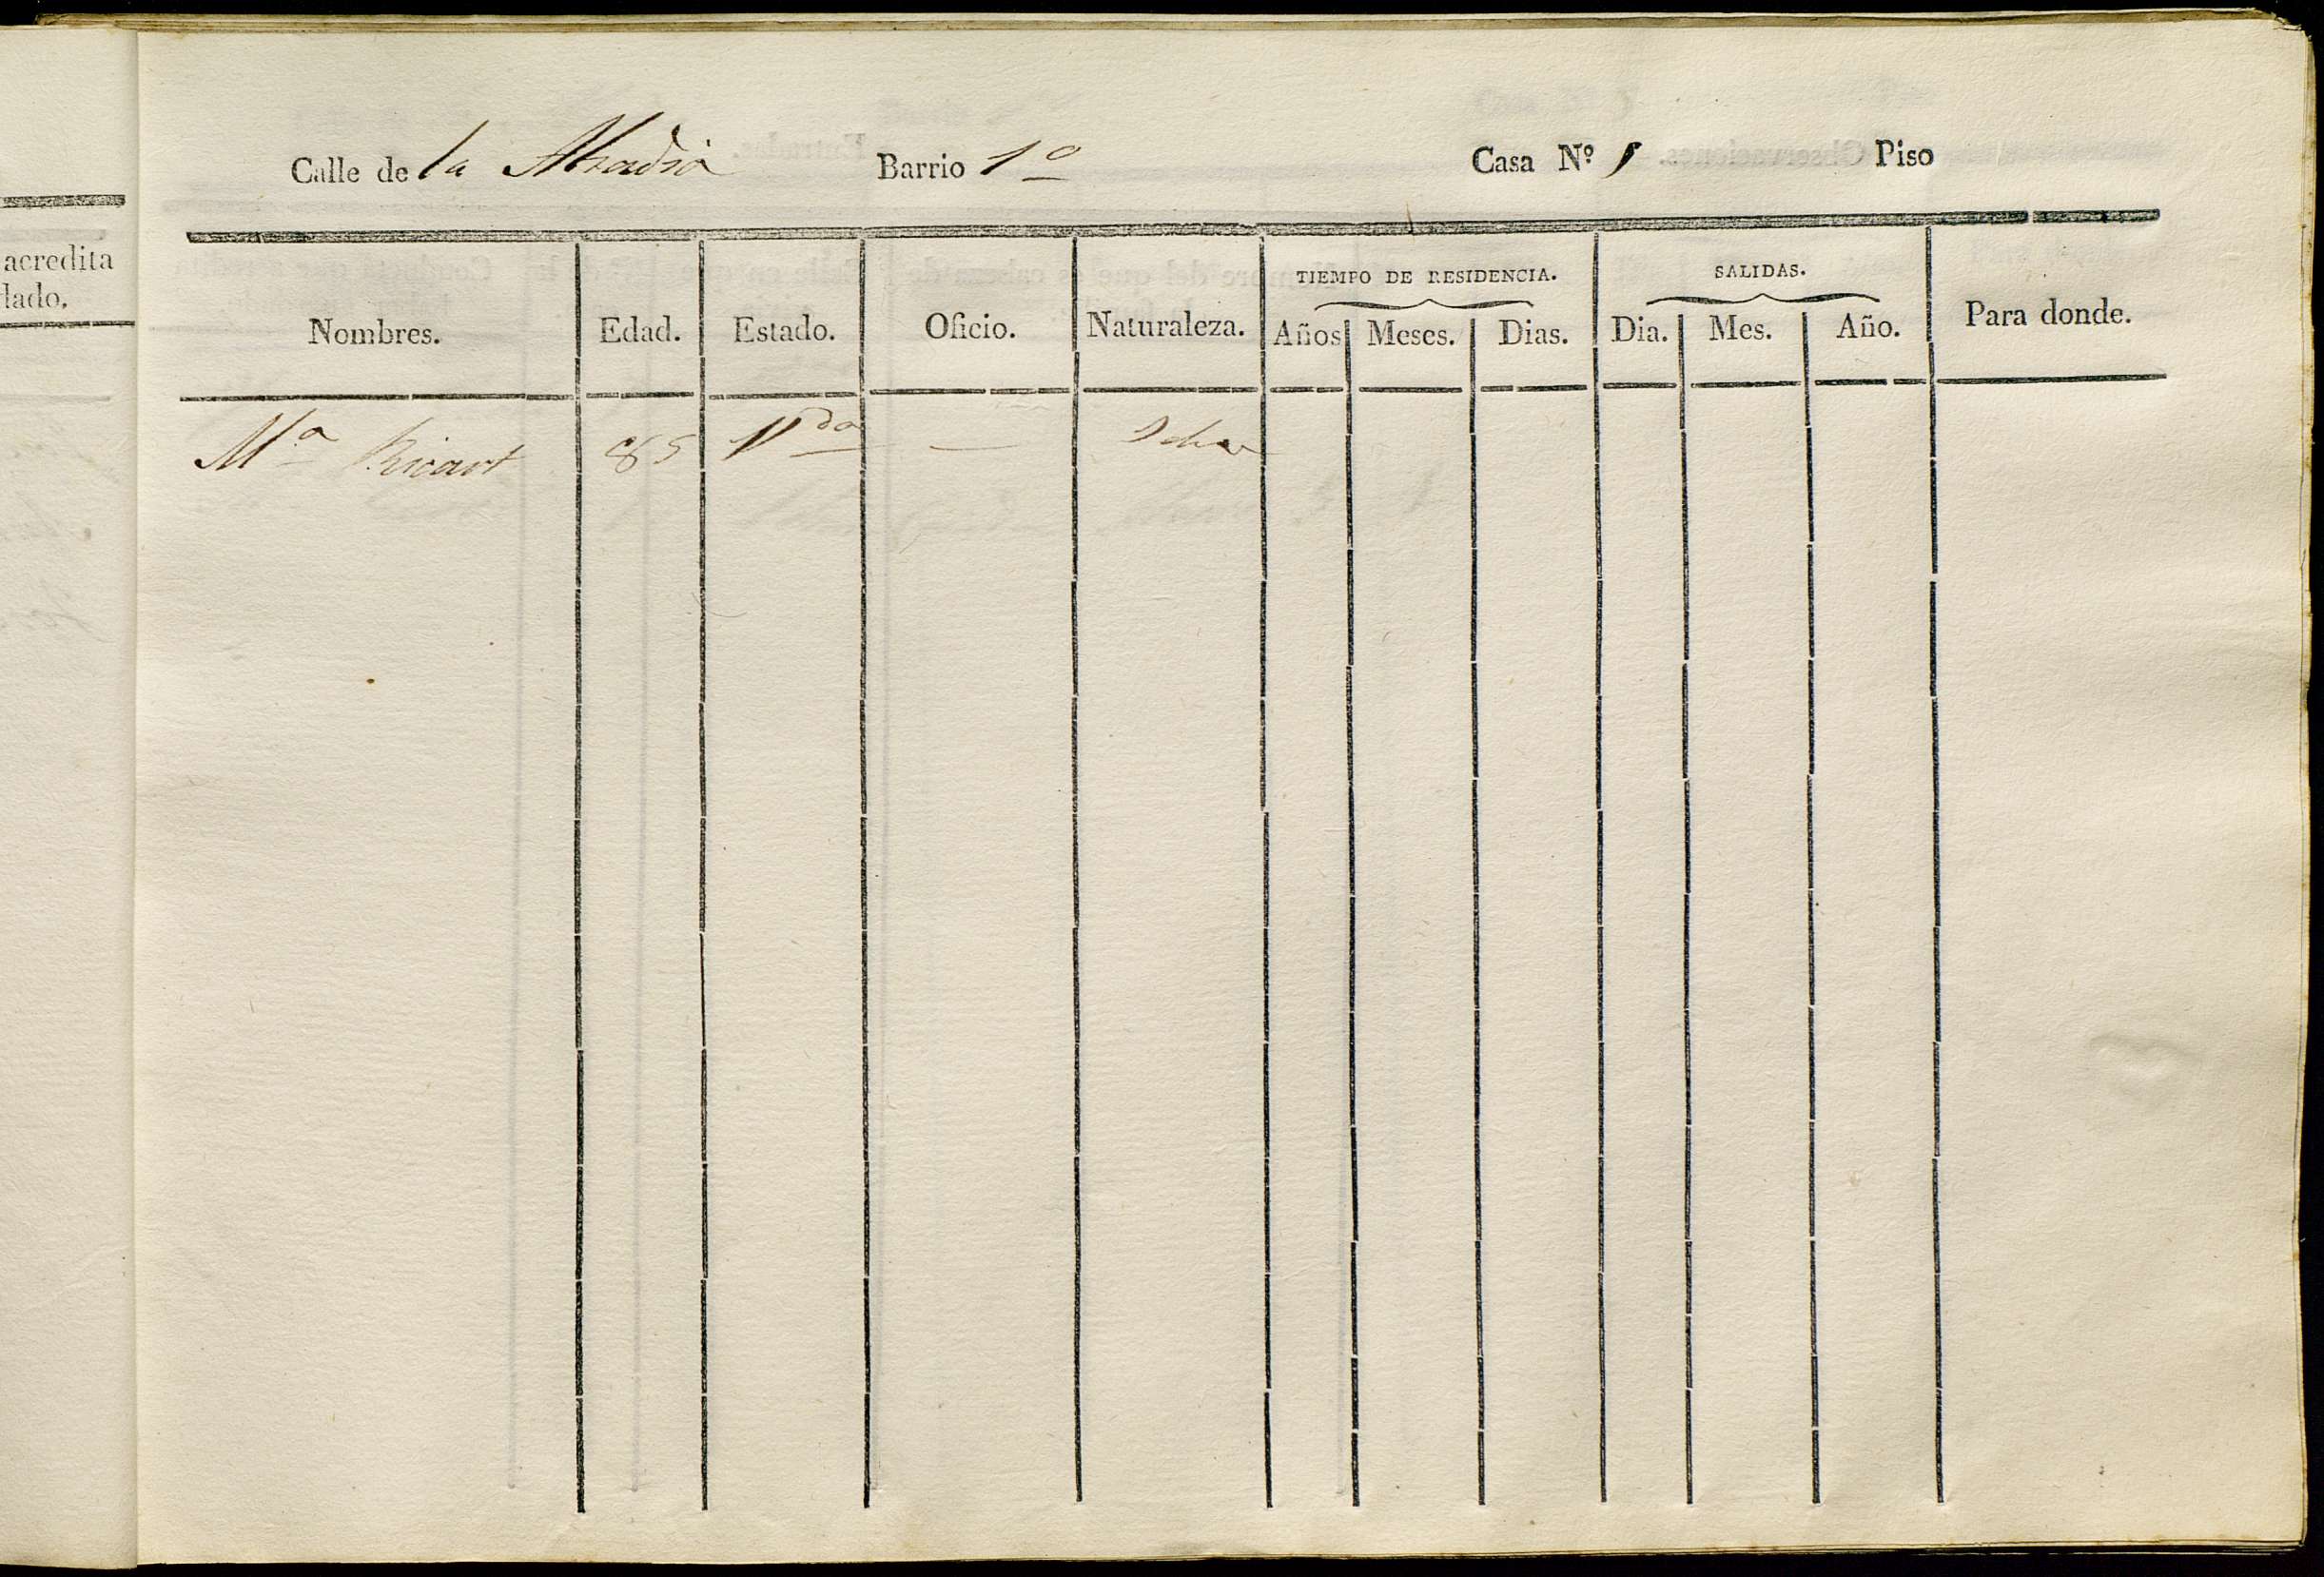 acredita
lado.
Calle de la Abadia Barrio 1º Casa Nº Piso
TIEMPO DE RESIDENCIA. SALIDAS.
Nombres. Edad. Estado. Oficio. Naturaleza. Años Meses. Dias. Dia. Mes. Año. Para donde.
Mª Ricart 85 Vda —